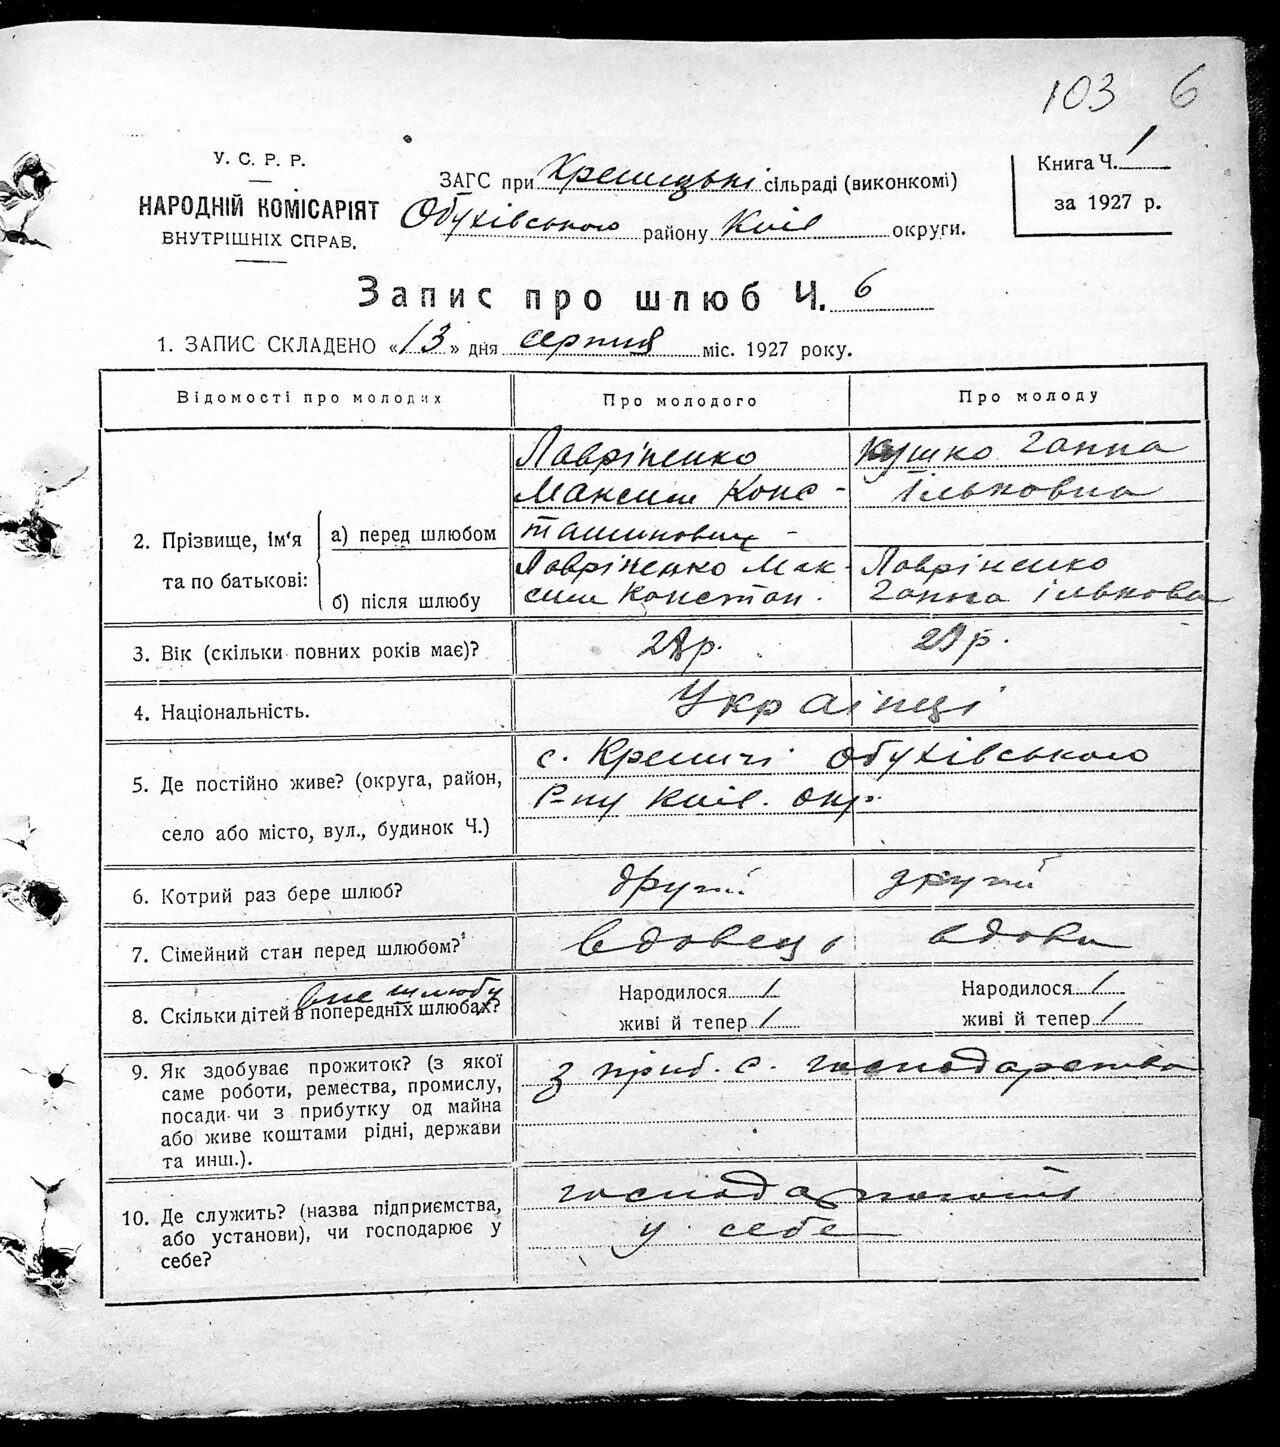 103 6
У. С. Р. Р.
НАРОДНІЙ КОМІСАРІЯТ
ВНУТРІШНІХ СПРАВ.
ЗАГС при Креницькі сільраді (виконкомі)
Обухівського району Київ округи.
Книга Ч. 1
за 1927 р.
Запис про шлюб Ч. 6
1. ЗАПИС СКЛАДЕНО «13» дня серпня міс. 1927 року.
Відомості про молодих
Про молодого
Про молоду
2. Прізвище, ім'я та по батькові:
а) перед шлюбом
Лавріненко
Максим Конс-
тантинович -
Кушко Ганна
Ільковна
б) після шлюбу
Лавріненко Мак-
сим Констан.
Лавріненко
Ганна Ількова
3. Вік (скільки повних років має)?
28 р.
р.
4. Національність.
Украінці
5. Де постійно живе? (округа, район,
село або місто, вул., будинок Ч.)
с. Креничі Обухівського
Р-ну Київ. окр.
6. Котрий раз бере шлюб?
другий
другий
7. Сімейний стан перед шлюбом?
вдовець
вдова
вне шлюбу
8. Скільки дітей в попередніх шлюбах?
Народилося 1
живі й тепер 1
Народилося 1
живі й тепер 1
9. Як здобуває прожиток? (з якої
саме роботи, ремества, промислу,
посади чи з прибутку од майна
або живе коштами рідні, держави
та инш.).
з приб. с. господарства
10. Де служить? (назва підприємства,
або установи), чи господарює у
себе?
у себе